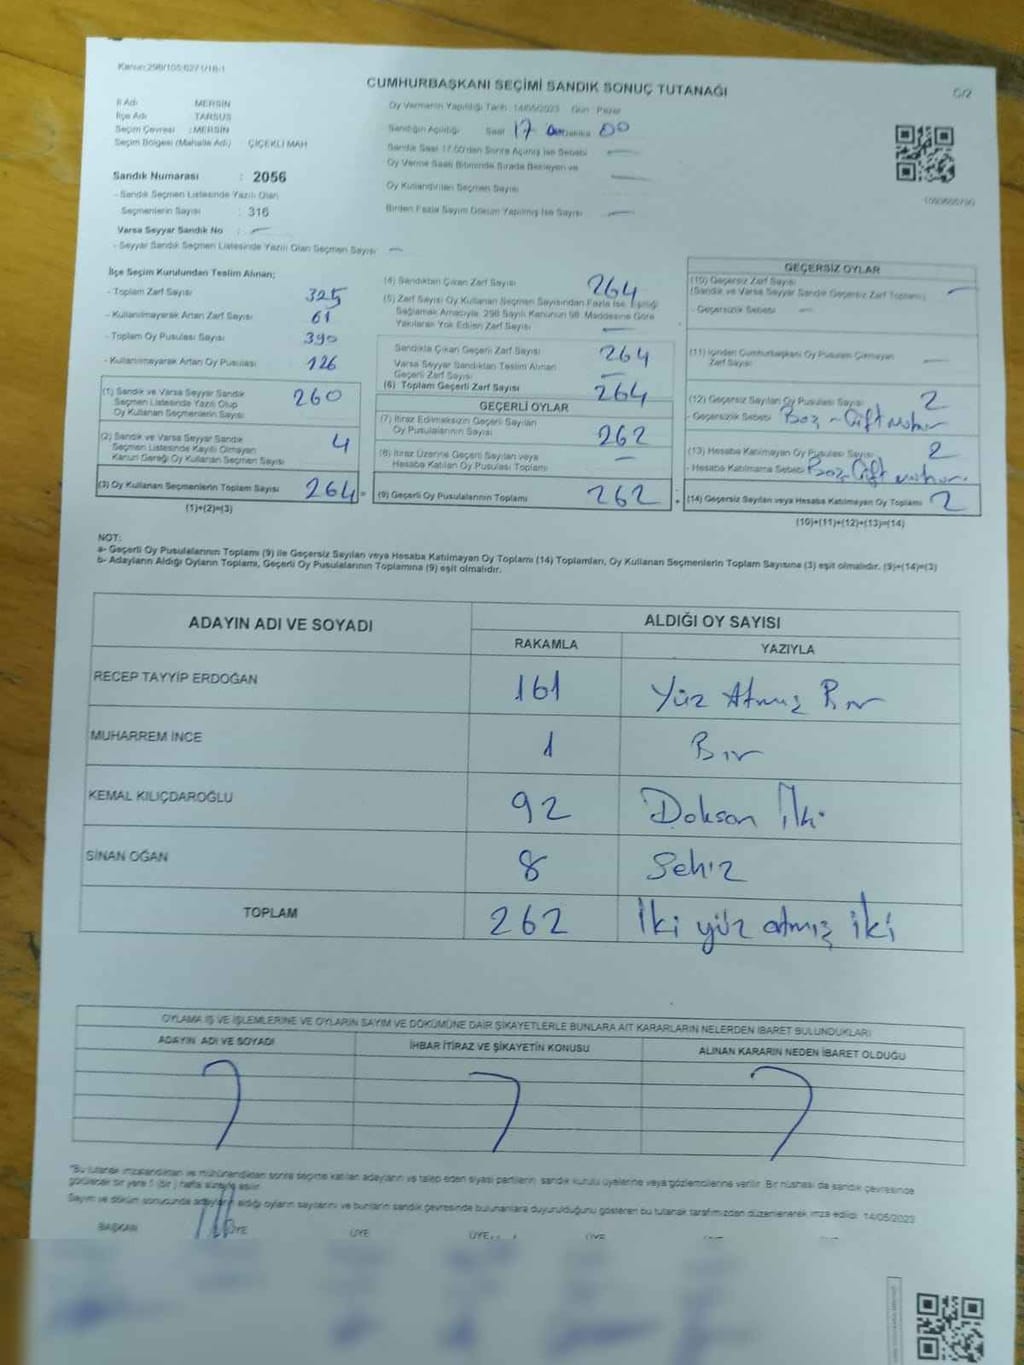 CUMHURBAŞKANI SEÇİMİ SANDIK SONUÇ TUTANAĞI
C/2
İl Adı MERSİN
İlçe Adı TARSUS
Seçim Çevresi : MERSİN
Seçim Bölgesi (Mahalle Adı) ÇİÇEKLİ MAH
Sandık Numarası : 2056
- Sandık Seçmen Listesinde Yazılı Olan
Seçmenlerin Sayısı : 316
Varsa Seyyar Sandık No : —
- Seyyar Sandık Seçmen Listesinde Yazılı Olan Seçmen Sayısı —
Oy Vermenin Yapıldığı Tarih : 14/05/2023 Gün : Pazar
Sandığın Açıldığı Saat 17 Dakika 00
Sandık Saat 17.00'dan Sonra Açılmış İse Sebebi —
Oy Verme Saati Bitiminde Sırada Bekleyen ve —
Oy Kullandırılan Seçmen Sayısı
Birden Fazla Sayım Döküm Yapılmış İse Sayısı —
İlçe Seçim Kurulundan Teslim Alınan;
- Toplam Zarf Sayısı 325
- Kullanılmayarak Artan Zarf Sayısı 61
- Toplam Oy Pusulası Sayısı 390
- Kullanılmayarak Artan Oy Pusulası 126
(1) Sandık ve Varsa Seyyar Sandık
Seçmen Listesinde Yazılı Olup
Oy Kullanan Seçmenlerin Sayısı 260
(2) Sandık ve Varsa Seyyar Sandık
Seçmen Listesinde Kayıtlı Olmayan
Kanun Gereği Oy Kullanan Seçmen Sayısı 4
(3) Oy Kullanan Seçmenlerin Toplam Sayısı 264 =
(1)+(2)=(3)
(4) Sandıktan Çıkan Zarf Sayısı 264
(5) Zarf Sayısı Oy Kullanan Seçmen Sayısından Fazla İse, Eşitliği
Sağlamak Amacıyla, 298 Sayılı Kanunun 98. Maddesine Göre
Yakılarak Yok Edilen Zarf Sayısı —
Sandıkta Çıkan Geçerli Zarf Sayısı 264
Varsa Seyyar Sandıktan Teslim Alınan
Geçerli Zarf Sayısı —
(6) Toplam Geçerli Zarf Sayısı 264
GEÇERLİ OYLAR
(7) İtiraz Edilmeksizin Geçerli Sayılan
Oy Pusulalarının Sayısı 262
(8) İtiraz Üzerine Geçerli Sayılan veya
Hesaba Katılan Oy Pusulası Toplamı —
(9) Geçerli Oy Pusulalarının Toplamı 262 +
GEÇERSİZ OYLAR
(10) Geçersiz Zarf Sayısı
(Sandık ve Varsa Seyyar Sandık Geçersiz Zarf Toplamı) —
- Geçersizlik Sebebi —
(11) İçinden Cumhurbaşkanı Oy Pusulası Çıkmayan
Zarf Sayısı —
(12) Geçersiz Sayılan Oy Pusulası Sayısı 2
- Geçersizlik Sebebi
(13) Hesaba Katılmayan Oy Pusulası Sayısı 2
- Hesaba Katılmama Sebebi
(14) Geçersiz Sayılan veya Hesaba Katılmayan Oy Toplamı 2
(10)+(11)+(12)+(13)=(14)
NOT:
a- Geçerli Oy Pusulalarının Toplamı (9) ile Geçersiz Sayılan veya Hesaba Katılmayan Oy Toplamı (14) Toplamları, Oy Kullanan Seçmenlerin Toplam Sayısına (3) eşit olmalıdır. (9)+(14)=(3)
b- Adayların Aldığı Oyların Toplamı, Geçerli Oy Pusulalarının Toplamına (9) eşit olmalıdır.
ADAYIN ADI VE SOYADI
ALDIĞI OY SAYISI
RAKAMLA YAZIYLA
RECEP TAYYİP ERDOĞAN 161 Yüz Atmış Bir
MUHARREM İNCE 1 Bir
KEMAL KILIÇDAROĞLU 92 Doksan İki
SİNAN OĞAN 8 Sekiz
TOPLAM 262 İki yüz atmış iki
OYLAMA İŞ VE İŞLEMLERİNE VE OYLARIN SAYIM VE DÖKÜMÜNE DAİR ŞİKAYETLERLE BUNLARA AİT KARARLARIN NELERDEN İBARET BULUNDUKLARI
ADAYIN ADI VE SOYADI İHBAR İTİRAZ VE ŞİKAYETİN KONUSU ALINAN KARARIN NEDEN İBARET OLDUĞU
"Bu tutanak imzalandıktan ve mühürlendikten sonra seçime katılan adayların ve talep eden siyasi partilerin, sandık kurulu üyelerine veya gözlemcilerine verilir. Bir nüshası da sandık çevresinde
görülecek bir yere 1 (bir) hafta süreyle asılır.
Sayım ve döküm sonucunda adayların aldığı oyların sayılarını ve bunların sandık çevresinde bulunanlara duyurulduğunu gösteren bu tutanak tarafımızdan düzenlenerek imza edildi. 14/05/2023
BAŞKAN ÜYE ÜYE ÜYE ÜYE